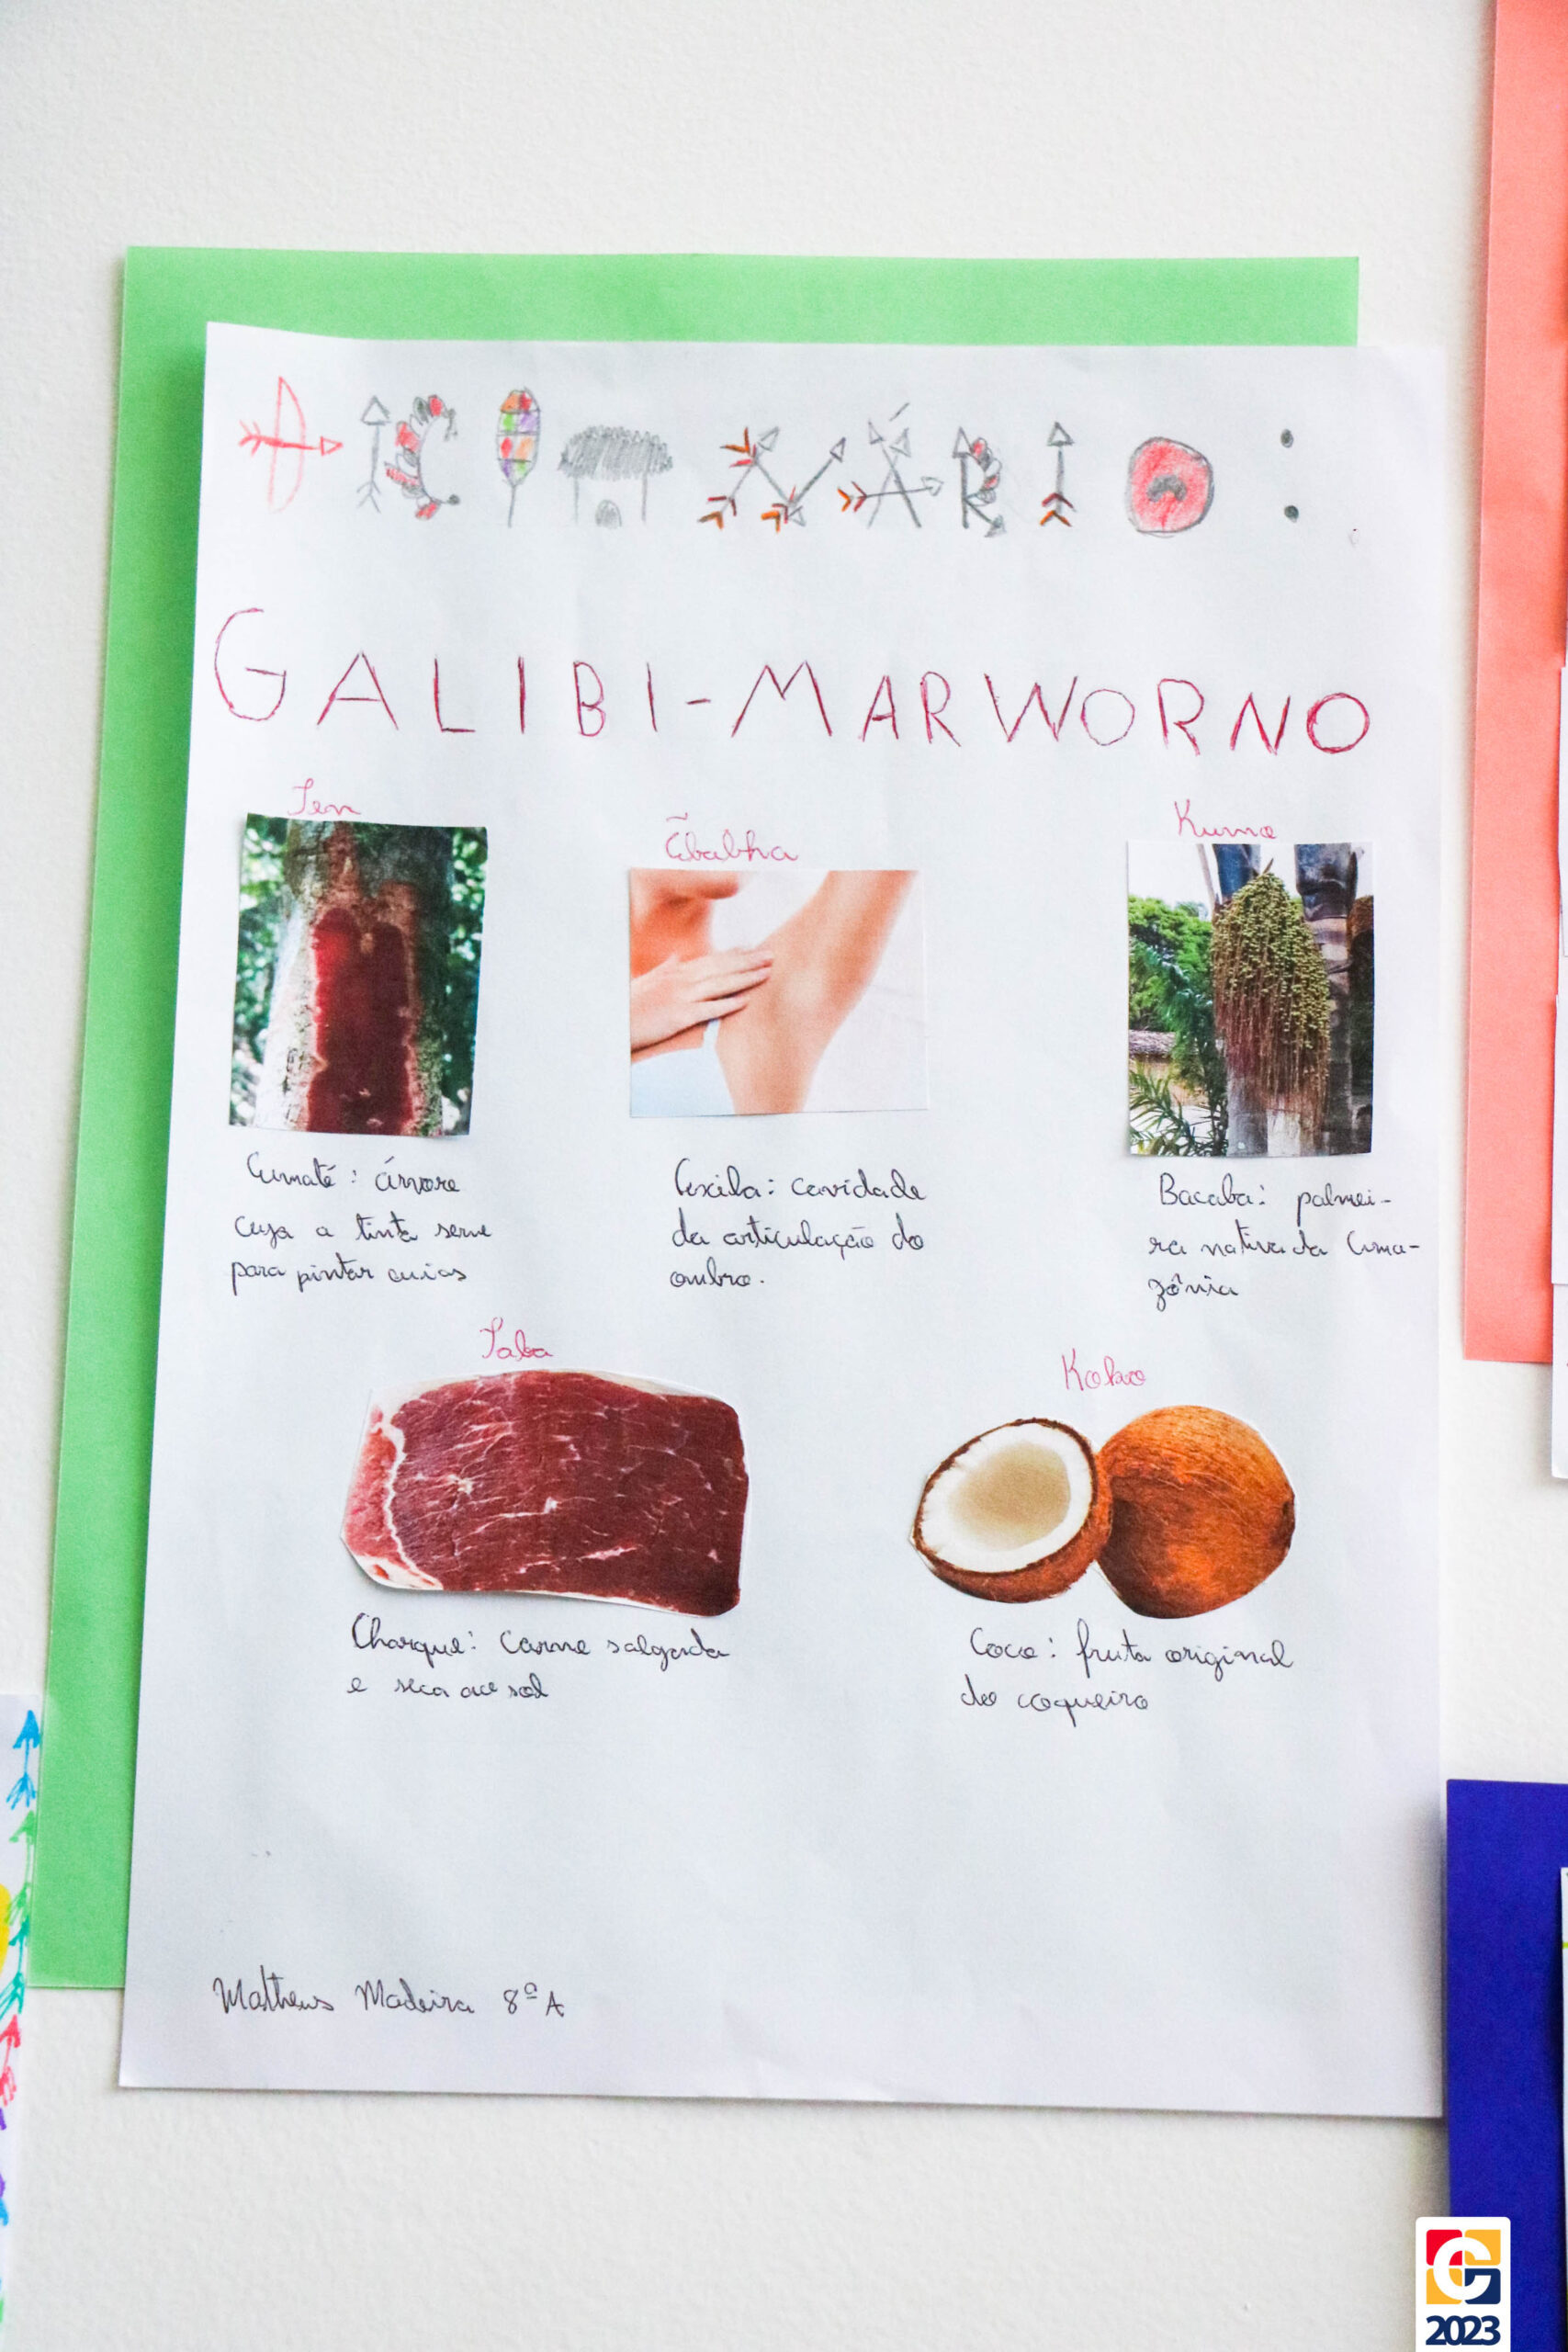 DICIONÁRIO:
GALIBI-MARWORNO
Ẽbabha
Kumo
Cumatê: árvore
cuja a tinta serve
para pintar cuias
Axila: cavidade
da articulação do
ombro.
Bacaba: palmei-
ra nativa da Ama-
zônia
Koko
Charque: carne salgada
e seca ao sol
Coco: fruta original
do coqueiro
Matheus Madeira 8º A
2023